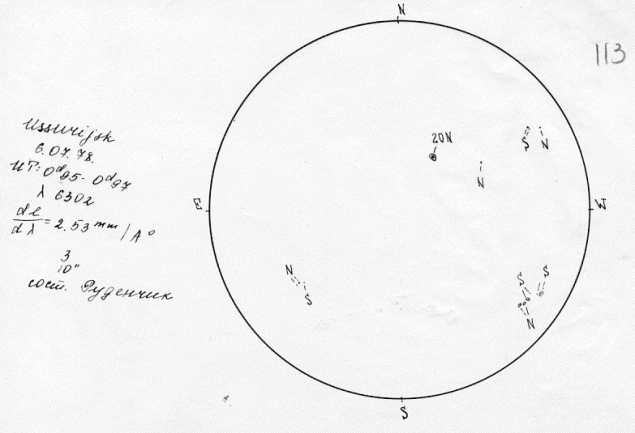 N
113
Ussurijsk
6.07.78.
UT: 0ᵈ95 - 0ᵈ97
λ 6302
dl/dλ = 2.53 mm / A°
3
10"
сост. Руденчик
20N
S N
N
E
W
N
S
S S
N
S